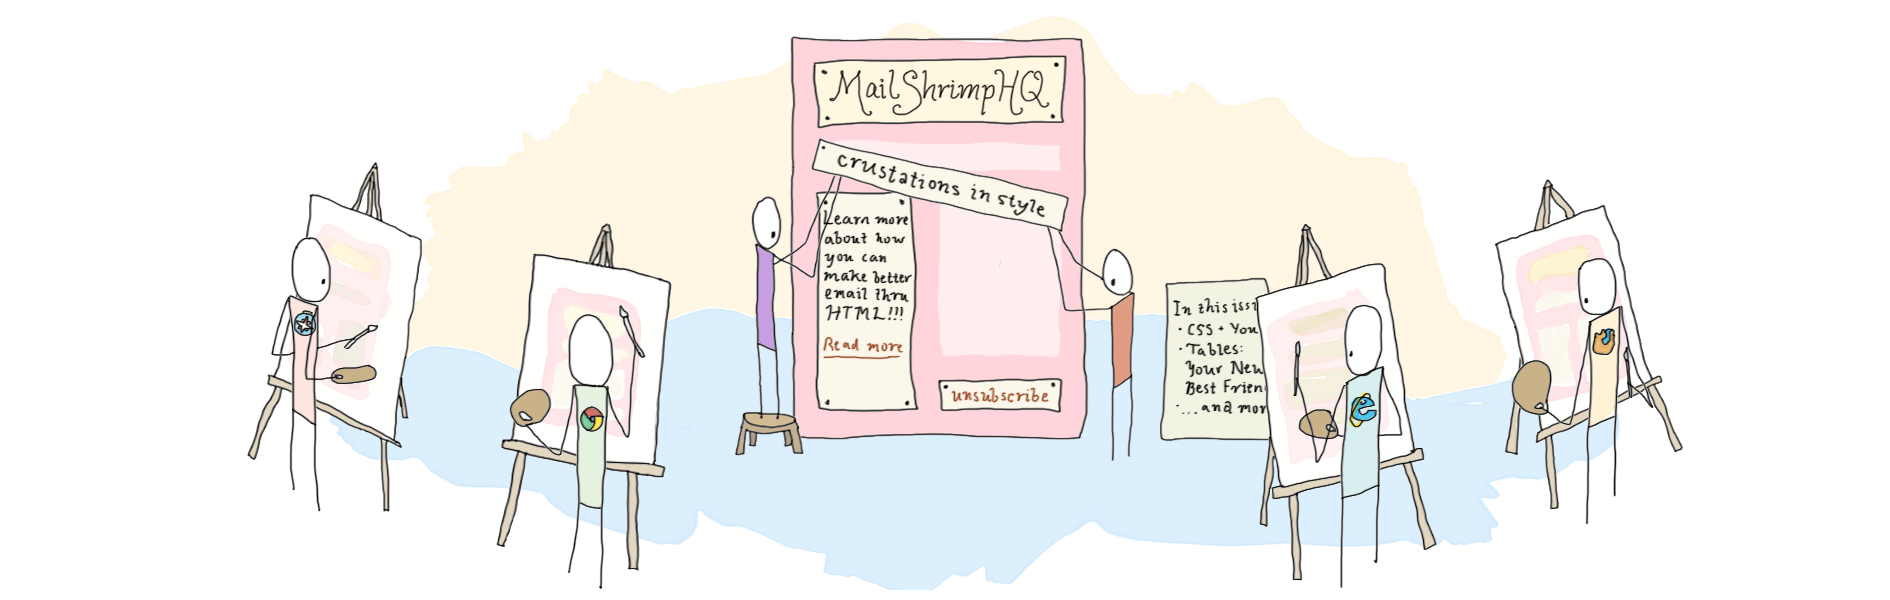 MailShrimpHQ
crustations in style
Learn more
about how
you can
make better
email thru
HTML!!!
Read more
unsubscribe
In this iss
· CSS + You
· Tables:
Your New
Best Frien
· ...and mor